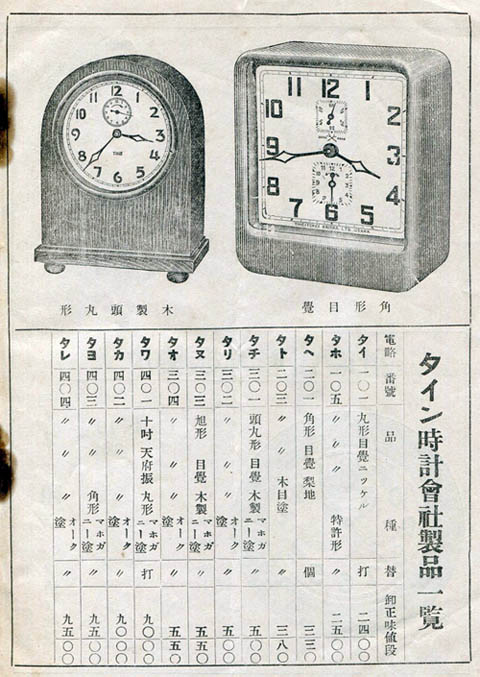 木製頭丸形
角形目覺
タイン時計會社製品一覽
電略 番號 品種 替 卸正味値段
タイ 一〇一 丸形目覺ニッケル 打 二四〇〇
タホ 一〇五 〃 〃 特許形 〃 二五〇〇
タヘ 二〇一 角形 目覺 梨地 個 三三〇
タト 二〇三 〃 〃 木目塗 〃 三八〇
タチ 三〇一 頭丸形 目覺 木製 マホガニー塗 〃 五〇〇
タリ 三〇二 〃 〃 〃 オーク塗 〃 五〇〇
タヌ 三〇三 旭形 目覺 木製 マホガニー塗 〃 五五〇
タオ 三〇四 〃 〃 〃 オーク塗 〃 五五〇
タワ 四〇一 十吋 天府振 丸形 マホガニー塗 打 九〇〇〇
タカ 四〇二 〃 〃 〃 オーク塗 〃 九〇〇〇
タヨ 四〇三 〃 〃 角形 マホガニー塗 〃 九五〇〇
タレ 四〇四 〃 〃 〃 オーク塗 〃 九五〇〇